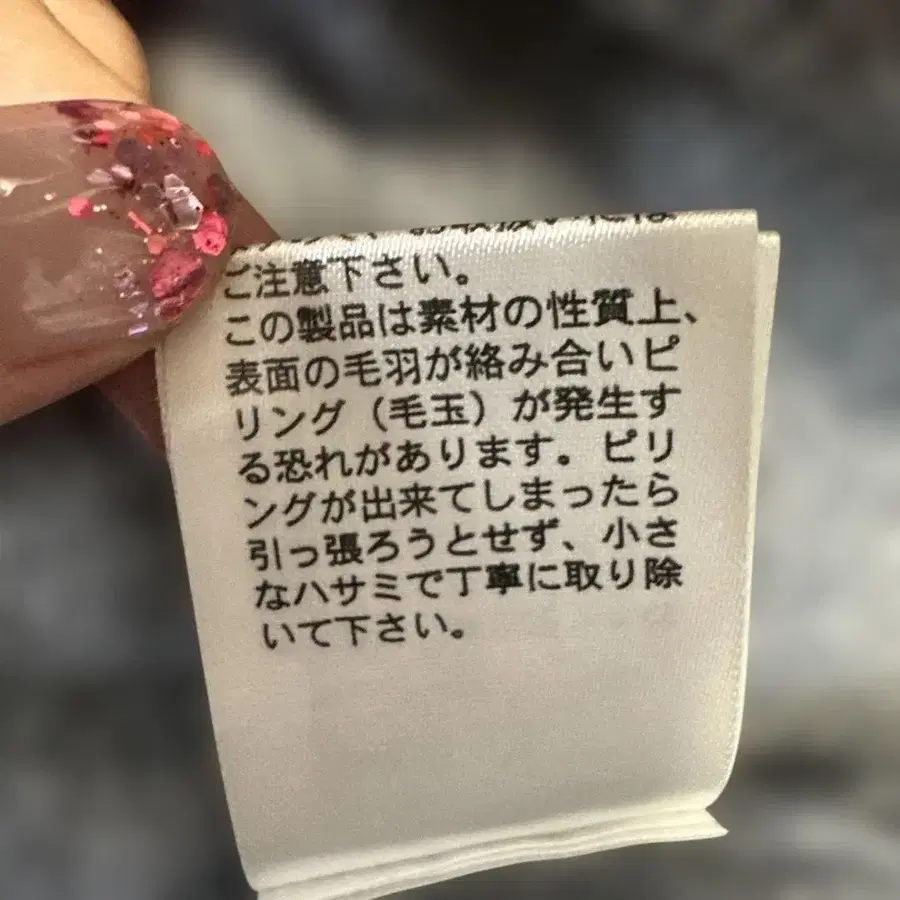 、お取扱いには
ご注意下さい。
この製品は素材の性質上、
表面の毛羽が絡み合いピ
リング（毛玉）が発生す
る恐れがあります。ピリ
ングが出来てしまったら
引っ張ろうとせず、小さ
なハサミで丁寧に取り除
いて下さい。